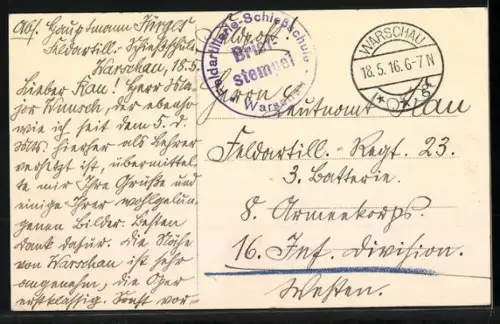 Abs. Hauptmann Jürges
Feldartill.-Schießschule
Warschau, 18.5.
Lieber Rau! Herr Ma-
jor Wunsch, der ebenso
wie ich seit dem 5. d.
Mts. hierher als Lehrer
versetzt ist, übermittel-
te mir Ihre Grüße und
einige Ihrer wohlgelun-
genen Bilder. Besten
Dank dafür. Die Nähe
von Warschau ist sehr
angenehm, die Oper
erstklassig. Sonst vor-
Feldpost
Feldartillerie-Schießschule
Brief-
stempel
Warschau
WARSCHAU
18.5.16.6-7N
Herrn
Leutnant Rau
Feldartill.-Regt. 23.
3. Batterie.
8. Armeekorps.
16. Inf. Division.
Westen.